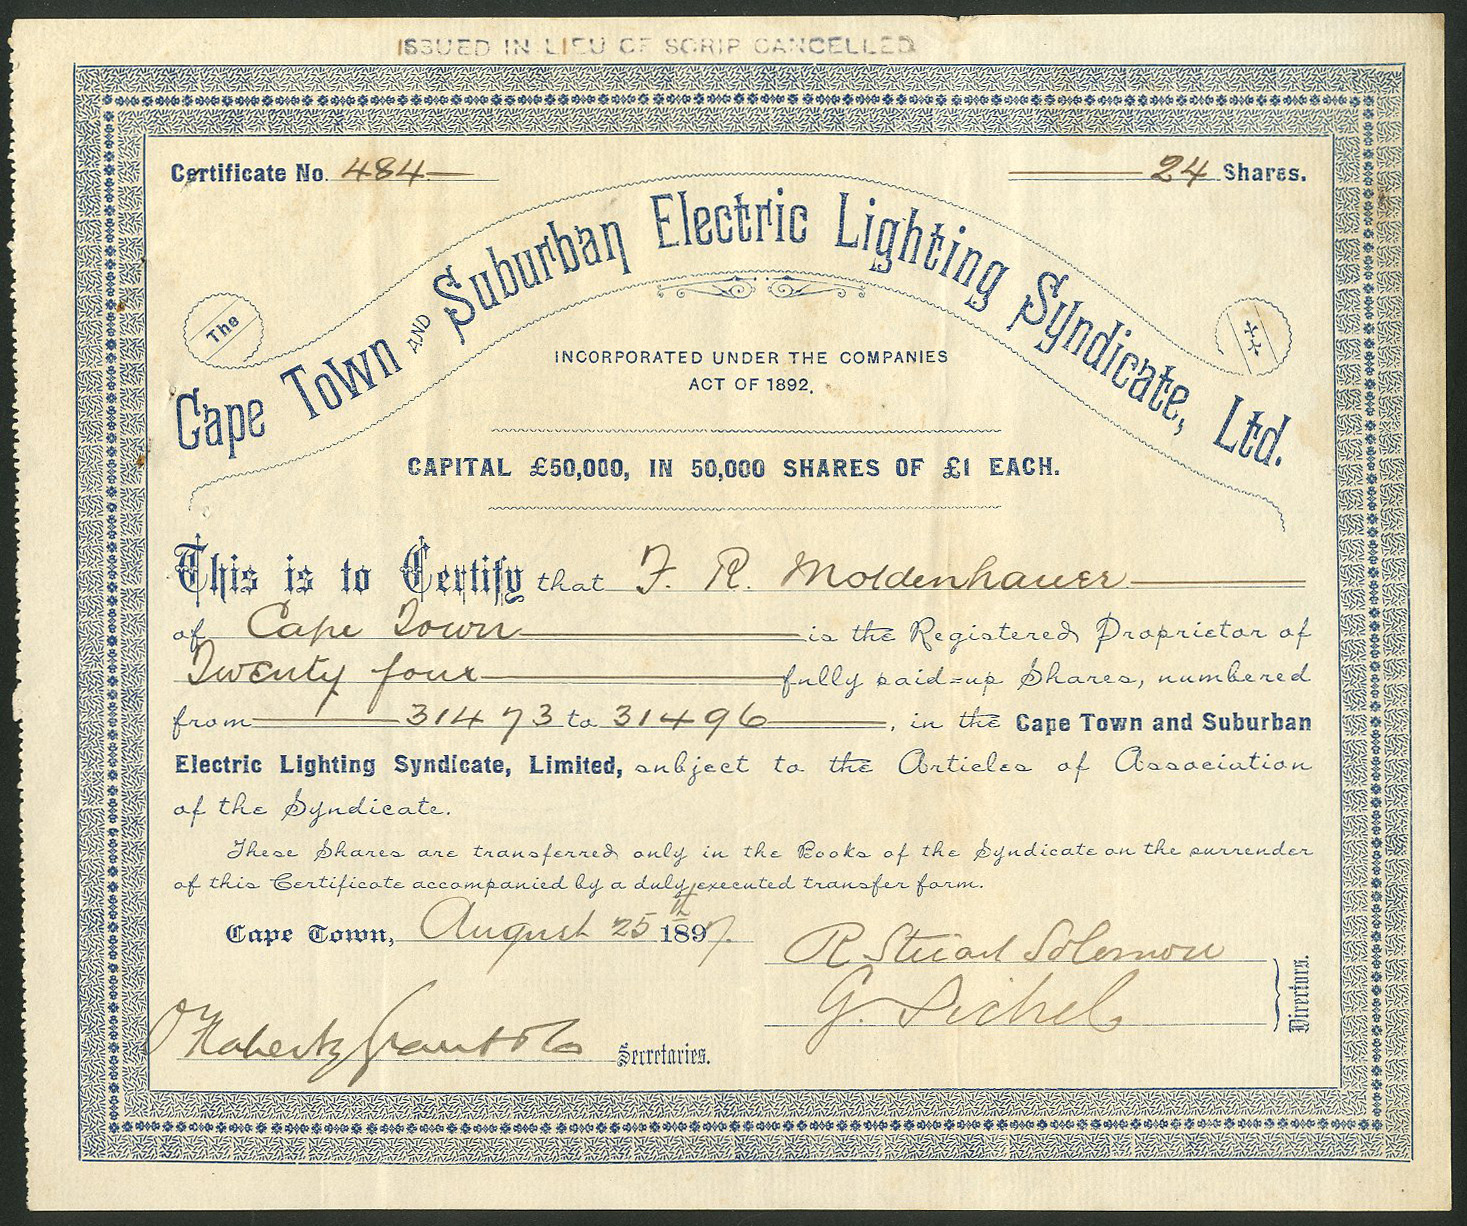 ISSUED IN LIEU OF SCRIP CANCELLED
Certificate No. 484 24 Shares.
The Cape Town AND Suburban Electric Lighting Syndicate, Ltd.
INCORPORATED UNDER THE COMPANIES
ACT OF 1892.
CAPITAL £50,000, IN 50,000 SHARES OF £1 EACH.
This is to Certify that F. R. Moldenhauer
of Cape Town is the Registered Proprietor of
Twenty four fully paid=up Shares, numbered
from 31473 to 31496, in the Cape Town and Suburban
Electric Lighting Syndicate, Limited, subject to the Articles of Association
of the Syndicate.
These Shares are transferred only in the Books of the Syndicate on the surrender
of this Certificate accompanied by a duly executed transfer form.
Cape Town, August 25th 1897.
R Stuart Solomon
G. Sichel
Directors.
Secretaries.